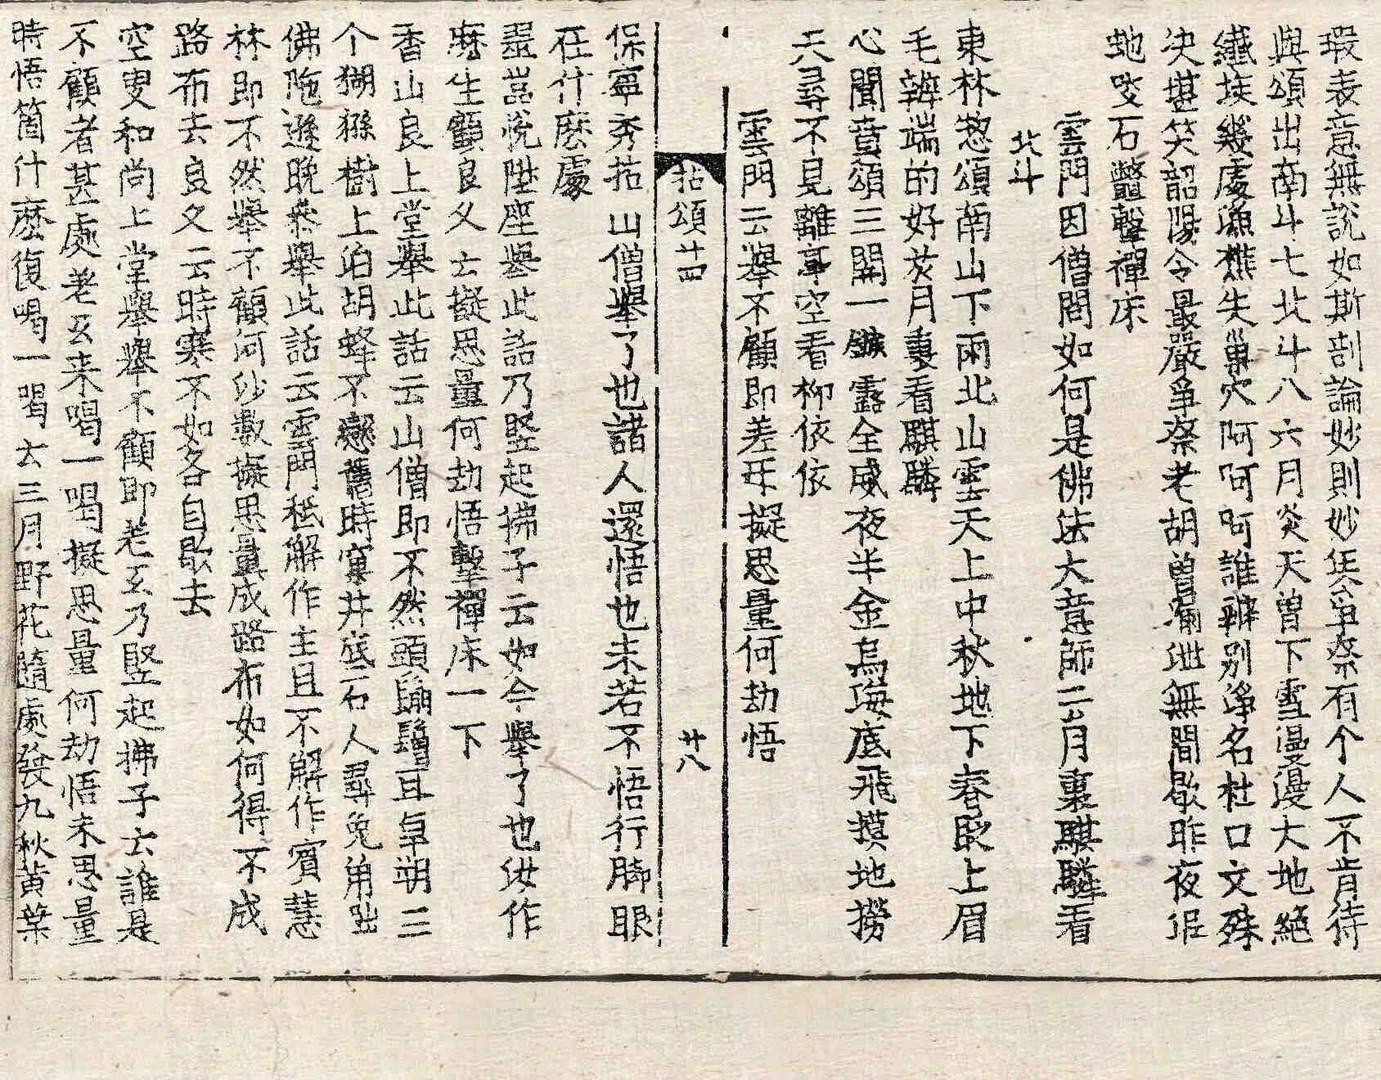 瑕表意無說如斯剖論妙則妙矣争奈有个人不肯待
與頌出南斗七北斗八六月炎天曽下雪漫漫大地絕
纎埃幾處漁樵失巢穴阿呵呵誰辨别淨名杜口文殊
决堪笑韶陽令最嚴争奈老胡曽漏泄無間歇昨夜泥
虵咬石鼈擊禪床
雲門因僧問如何是佛法大意師云月裏騏驎看
北斗
東林惣頌南山下雨北山雲天上中秋地下春眨上眉
毛辨端的好於月裏看騏驎
心聞賁頌三開一鏃露全威夜半金烏海底飛摸地撈
天尋不見離亭空看柳依依
雲門云舉不顧即差互擬思量何劫悟
拈頌廿四
廿八
保寧秀拈山僧舉了也諸人還悟也未若不悟行脚眼
在什麽處
翠嵓悅陞座舉此話乃竪起拂子云如今舉了也汝作
麽生顧良久云擬思量何劫悟擊禪床一下
香山良上堂舉此話云山僧即不然頭鬅鬙耳卓朔三
个猢猻樹上泊胡蜂不戀舊時窠井底石人尋兎角咄
佛陁遜晚叅舉此話云雲門秪解作主且不解作賓慧
林即不然舉不顧河沙數擬思量成路布如何得不成
路布去良久云時寒不如各自歸去
空叟和尚上堂舉舉不顧即老玄乃竪起拂子云誰是
不顧者甚處老玄来喝一喝擬思量何劫悟未思量
時悟箇什麽復喝一喝云三月野花隨處發九秋黄葉